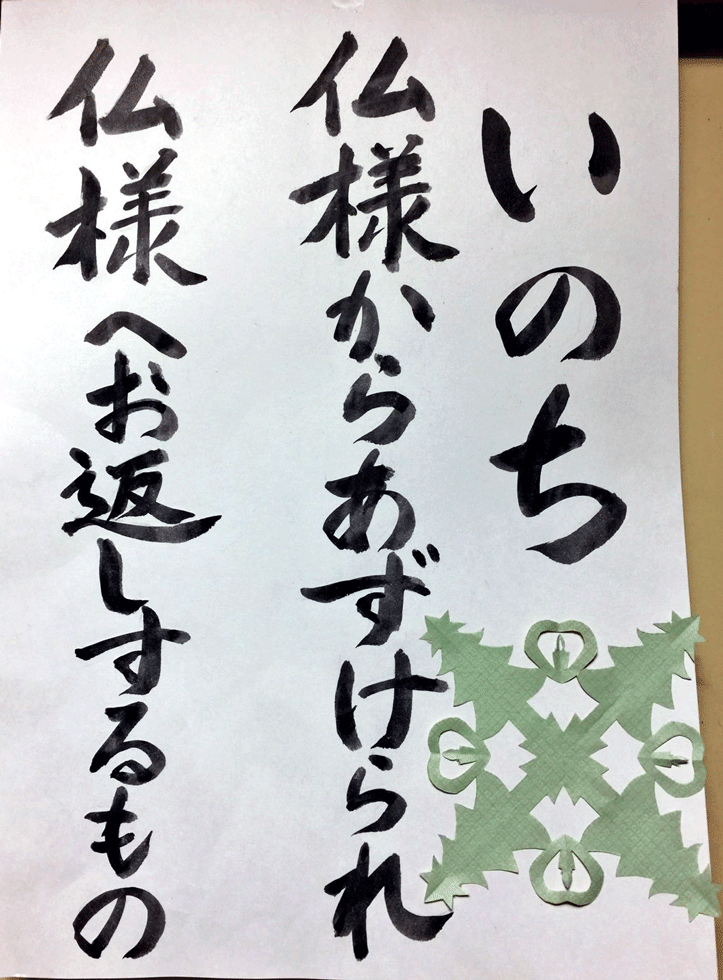 いのち
仏様からあずけられ
仏様へお返しするもの